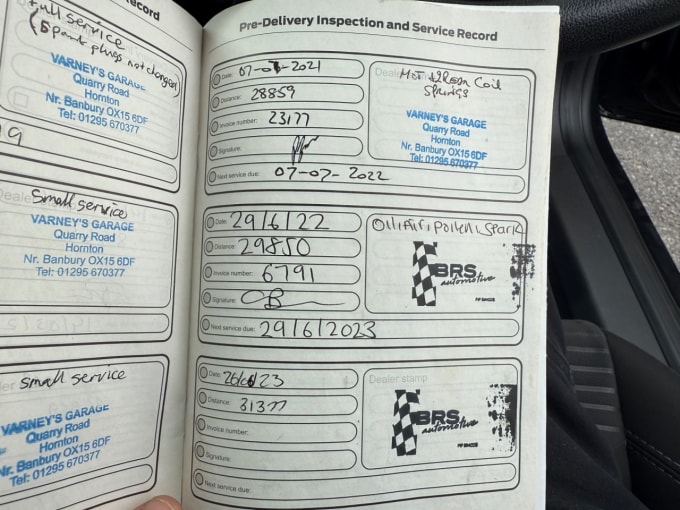 Record
Full service
(Spark plugs not changed)
VARNEY'S GARAGE
Quarry Road
Hornton
Nr. Banbury OX15 6DF
Tel: 01295 670377
Small service
VARNEY'S GARAGE
Quarry Road
Hornton
Nr. Banbury OX15 6DF
Tel: 01295 670377
small service
VARNEY'S GARAGE
Quarry Road
Hornton
Nr. Banbury OX15 6DF
Tel: 01295 670377
Pre-Delivery Inspection and Service Record
Date: 07-07-2021
Distance: 28859
Invoice number: 23177
Signature:
Next service due: 07-07-2022
MOT & Rear Coil
Springs
VARNEY'S GARAGE
Quarry Road
Hornton
Nr. Banbury OX15 6DF
Tel: 01295 670377
Date: 29/6/22
Distance: 29850
Invoice number: 6791
Signature:
Next service due: 29/6/2023
Oil, Air, pollen, Spark
BRS
automotive
Date: 23
Distance: 31377
Invoice number:
Signature:
Next service due:
Dealer stamp
BRS
automotive